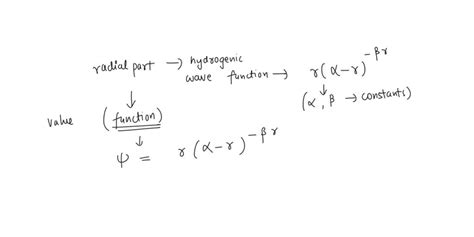 radial part → hydrogenic
wave function → r(α-r)^{-βr}
(α, β → constants)
value (function)
ψ = r(α-r)^{-βr}